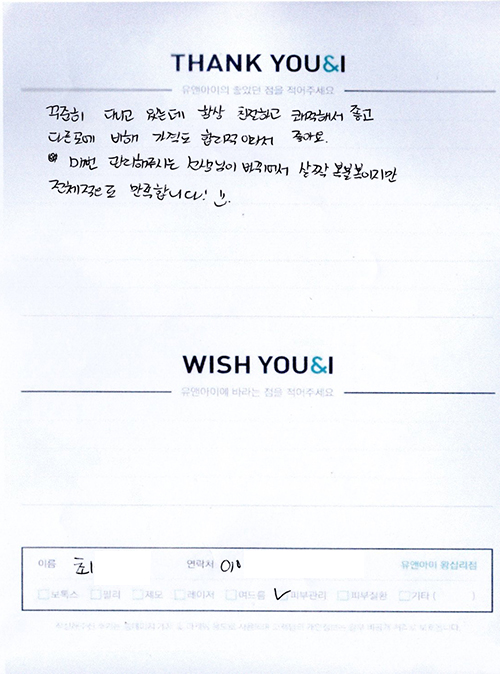 THANK YOU&I
유앤아이의 좋았던 점을 적어주세요
꾸준히 다니고 있는데 항상 친절하고 쾌적해서 좋고
다른곳에 비해 가격도 합리적이라서 좋아요.
매번 관리해주시는 선생님이 바뀌어서 살짝 복불복이지만
전체적으로 만족합니다! :)
WISH YOU&I
유앤아이에 바라는 점을 적어주세요
이름 최 연락처 01 유앤아이 왕십리점
보톡스 필러 제모 레이저 여드름 ✓ 피부관리 피부질환 기타 ( )